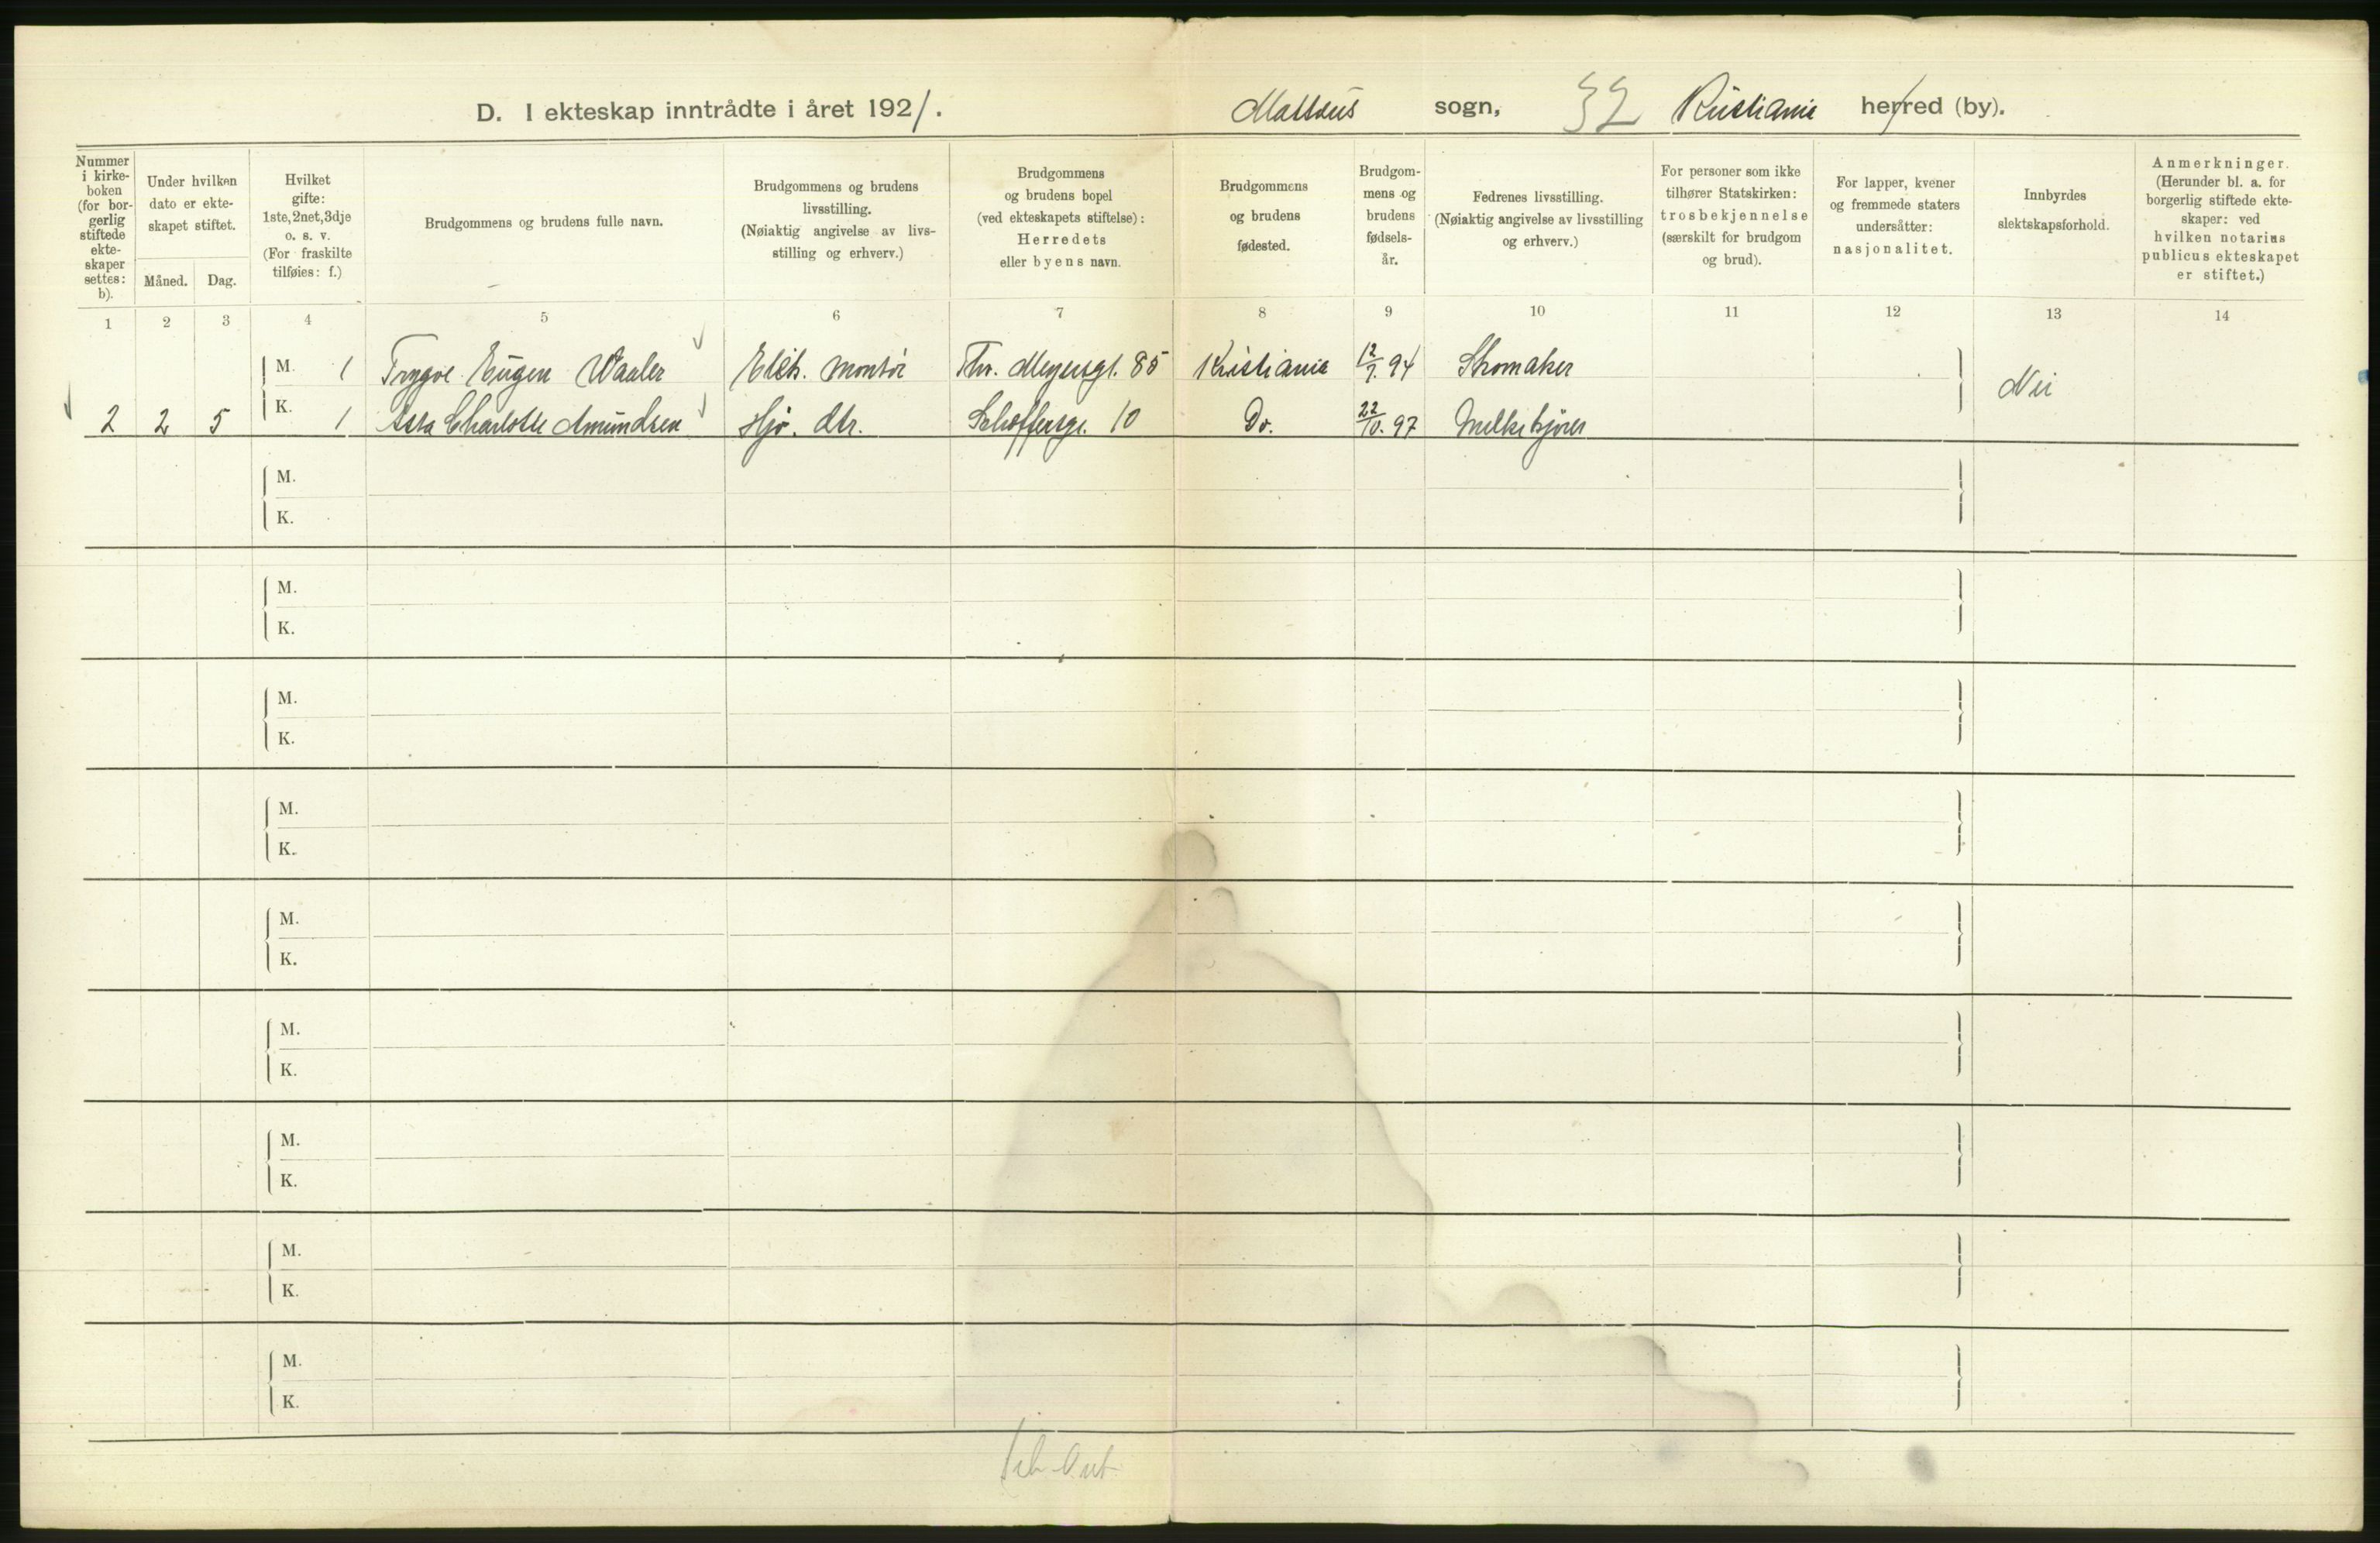 D. I ekteskap inntrådte i året 1921. Mattæus sogn, 32 Kristiania herred (by).
Nummer i kirkeboken (for borgerlig stiftede ekteskaper settes: b).
Under hvilken dato er ekteskapet stiftet.
Måned.
Dag.
Hvilket gifte: 1ste, 2net, 3dje o. s. v. (For fraskilte tilføies: f.)
Brudgommens og brudens fulle navn.
Brudgommens og brudens livsstilling. (Nøiaktig angivelse av livsstilling og erhverv.)
Brudgommens og brudens bopel (ved ekteskapets stiftelse): Herredets eller byens navn.
Brudgommens og brudens fødested.
Brudgommens og brudens fødselsår.
Fedrenes livsstilling. (Nøiaktig angivelse av livsstilling og erhverv.)
For personer som ikke tilhører Statskirken: trosbekjennelse (særskilt for brudgom og brud).
For lapper, kvener og fremmede staters undersåtter: nasjonalitet.
Innbyrdes slektskapsforhold.
Anmerkninger. (Herunder bl. a. for borgerlig stiftede ekteskaper: ved hvilken notarius publicus ekteskapet er stiftet.)
1 2 3 4 5 6 7 8 9 10 11 12 13 14
M. 1 Trygve Eugen Waaler Elektr. montør Thv. Meyersgt. 85 Kristiania 12/7. 94 Skomaker Nei
2 2 5 K. 1 Asta Charlotte Amundsen Hjv. dtr. 10 Do. 22/10. 97 Melkekjører
M.
K.
M.
K.
M.
K.
M.
K.
M.
K.
M.
K.
M.
K.
M.
K.
M.
K.